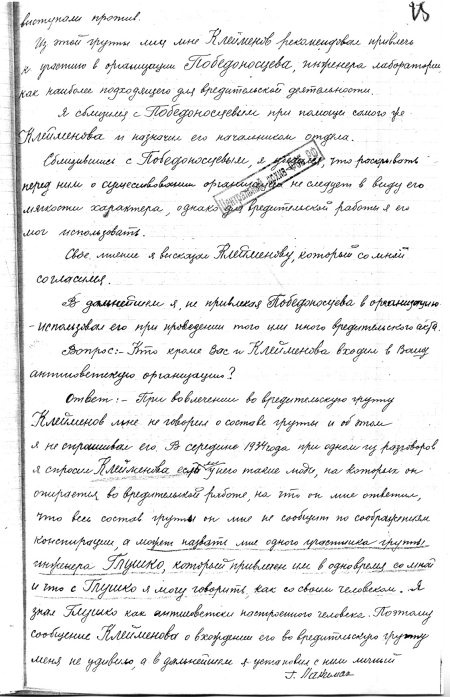 выступали против.
Из этой группы лиц мне Клейменов рекомендовал привлечь
к участию в организации Победоносцева, инженера лаборатории
как наиболее подходящего для вредительской деятельности.
Я сблизился с Победоносцевым при помощи самого же
Клейменова и назначил его начальником отдела.
Сблизившись с Победоносцевым, я убедился, что раскрывать
перед ним о существовании организации не следует в виду его
мягкости характера, однако для вредительской работы я его
мог использовать.
Свое мнение я высказал Клейменову, который со мной
согласился.
В дальнейшем я, не привлекая Победоносцева в организацию
- использовал его при проведении того или иного вредительского акта.
Вопрос:- Кто кроме Вас и Клейменова входил в Вашу
антисоветскую организацию?
Ответ:- При вовлечении во вредительскую группу
Клейменов мне не говорил о составе группы и об этом
я не спрашивал его. В середине 1934 года при одном из разговоров
я спросил Клейменова есть ли у него такие люди, на которых он
опирается во вредительской работе, на что он мне ответил,
что весь состав группы он мне не сообщит по соображениям
конспирации, а может назвать мне одного участника группы
инженера Глушко, который привлечен им в одно время со мной
и что с Глушко я могу говорить, как со своим человеком. Я
знал Глушко как антисоветски настроенного человека. Поэтому
сообщение Клейменова о вхождении его во вредительскую группу
меня не удивило, а в дальнейшем я установил с ним личный
Г. Лангемак